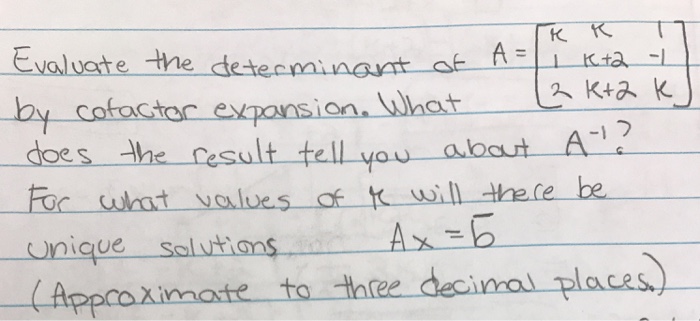 Evaluate the determinant of A = [K K 1
1 K+2 -1
2 K+2 K]
by cofactor expansion. What
does the result tell you about A⁻¹?
For what values of K will there be
unique solutions Ax = b̄
(Approximate to three decimal places.)